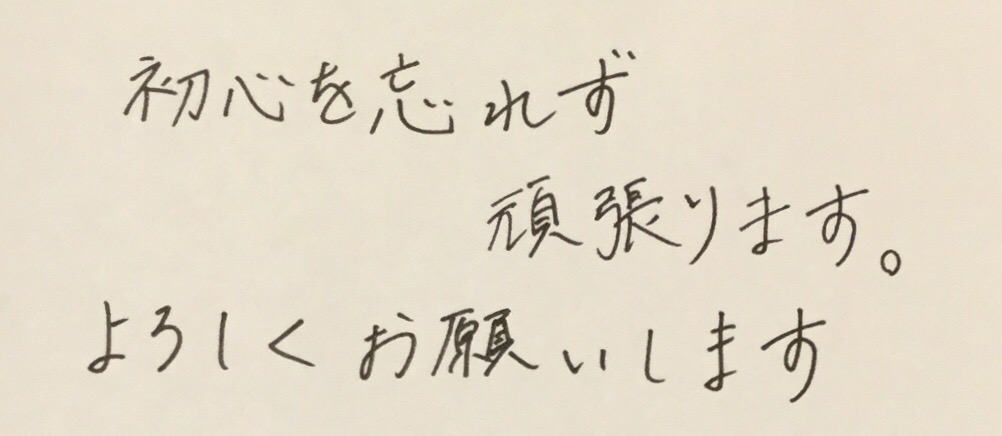 初心を忘れず
頑張ります。
よろしくお願いします